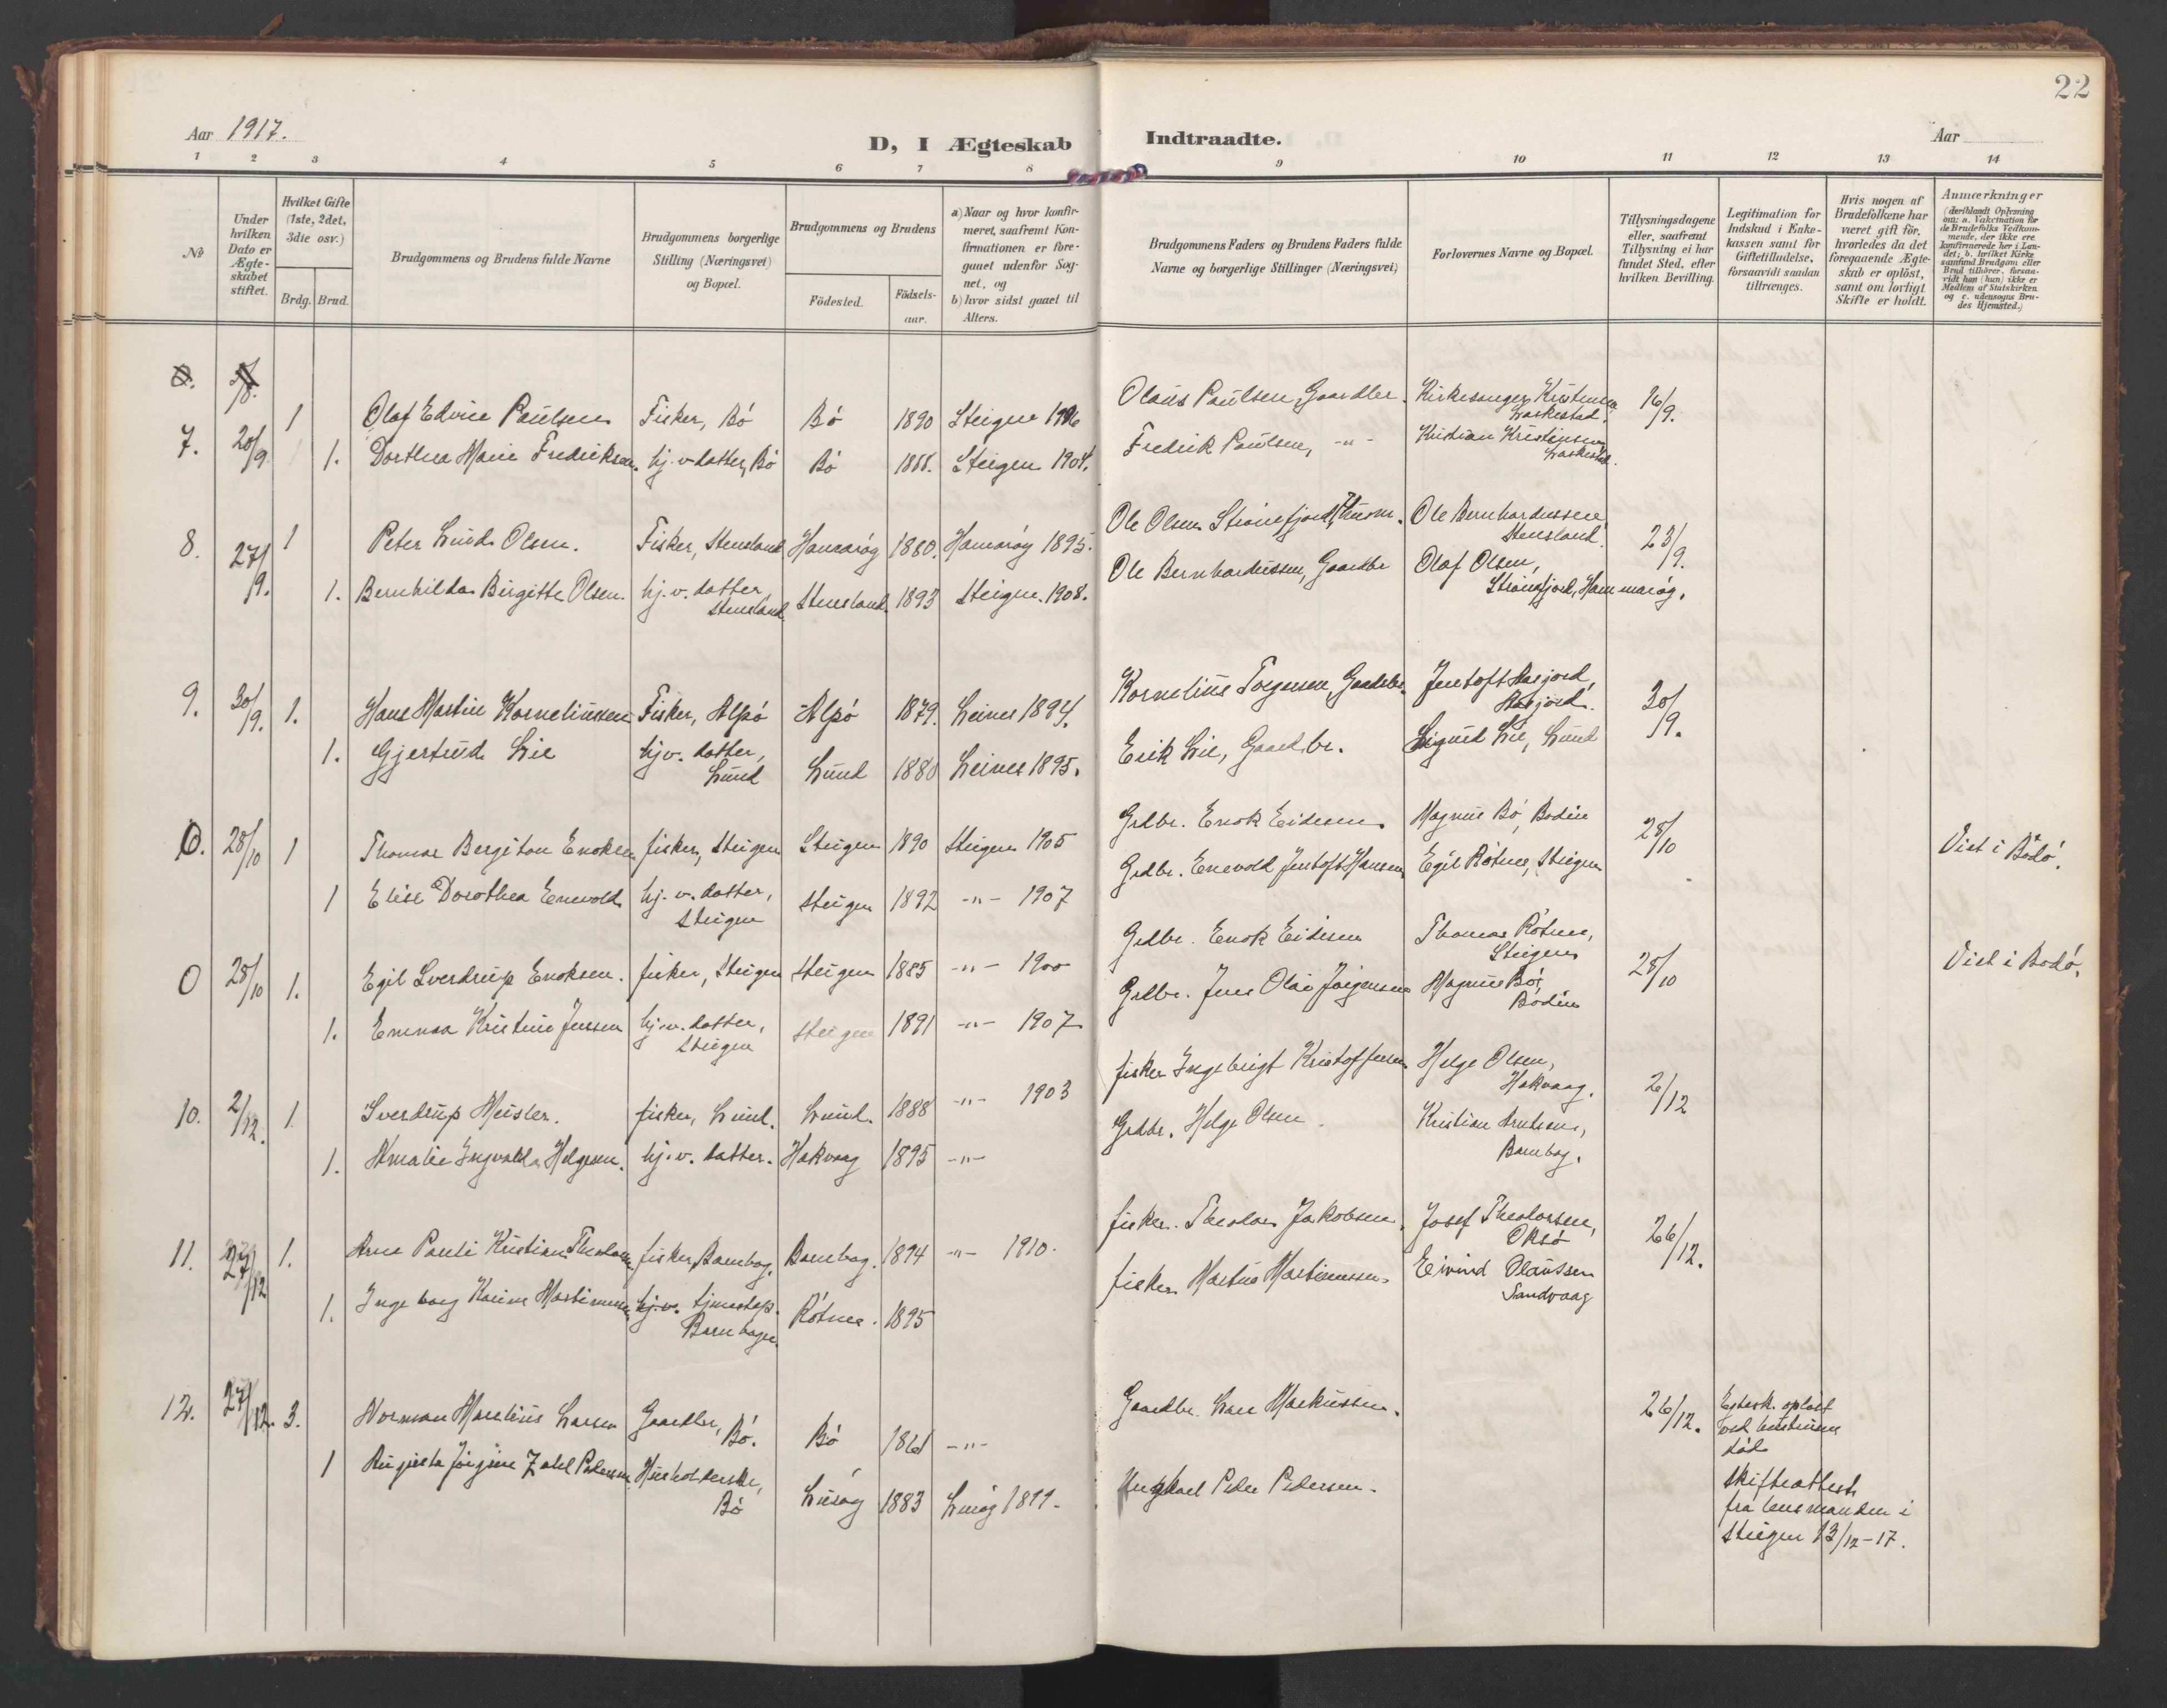 22
Aar 1917.
D, I Ægteskab
Indtraadte.
Aar
1 2 3 4 5 6 7 8 9 10 11 12 13 14
№
Under
hvilken
Dato er
Ægte-
skabet
stiftet.
Hvilket Gifte
(1ste, 2det,
3die osv.)
Brdg. Brud.
Brudgommens og Brudens fulde Navne
Brudgommens borgerlige
Stilling (Næringsvei)
og Bopæl.
Brudgommens og Brudens
Födested.
Födsels-
aar.
a) Naar og hvor konfir-
meret, saafremt Kon-
firmationen er fore-
gaaet udenfor Sog-
net, og
b) hvor sidst gaaet til
Alters.
Brudgommens Faders og Brudens Faders fulde
Navne og borgerlige Stillinger (Næringsvei)
Forlovernes Navne og Bopæl.
Tillysningsdagene
eller, saafremt
Tillysning ei har
fundet Sted, efter
hvilken Bevilling.
Legitimation for
Indskud i Enke-
kassen samt for
Giftetilladelse,
forsaavidt saadan
tiltrænges.
Hvis nogen af
Brudefolkene har
været gift för,
hvorledes da det
foregaaende Ægte-
skab er oplöst,
samt om lovligt
Skifte er holdt.
Anmærkninger
(deriblandt Oplysning
om: a. Vakcination for
de Brudefolks Vedkom-
mende, der ikke ere
konfirmerede her i Lan-
det; b. hvilket Kirke
samfund Brudgom eller
Brud tilhörer, forsaa-
vidt han (hun) ikke er
Medlem af Statskirken
og c. udensogns Bru-
des Hjemsted.)
1 Olaf Edvin Paulsen Fisker, Bó Bó 1890 Steigen 1906 Olaus Paulsen, Gaardbr. Kirkesanger Kristensen Laskestad. 16/9.
7. 20/9 1. Dorthea Marie Fredriksen. hj. v. datter, Bó Bó 1888. Steigen 1904. Fredrik Paulsen, -"- Kristian Kristensen Laskestad.
8. 27/9. 1 Peter Lind Olsen. Fisker, Stensland Hamaróy 1880. Hamaróy 1895. Ole Olsen Straumfjord, Husm. Ole Bernhardussen Stensland. 23/9.
1. Bernhilda Birgitte Olsen. hj. v. datter, Stensland Stensland 1893 Steigen 1908. Ole Bernhardussen, Gaardbr Olaf Olsen, Straumfjord, Hammaróy.
9. 30/9. 1. Hans Martin Korneliussen Fisker, Alpó Alpó 1879. Leines 1894. Kornelius Torgersen, Gaardbr. Jentoft Hasjord, Hasjord. 30/9.
1. Gjertrud Lie hj v. datter, Lund Lund 1880 Leines 1895. Erik Lie, Gaardbr. Sigurd Lie, Lund
0. 28/10 1 Thomas Bergiton Enoksen fisker, Steigen Steigen 1890 Steigen 1905 Grdbr. Enok Eidesen Magnus Bó, Bodin 28/10 Viet i Bodó.
1 Elise Dorothea Enevolds hj. v. datter, Steigen Steigen 1892 -"- 1907 Grdbr. Enevold Jentoft Hansen Egil Rótnes, Steigen
0 28/10 1. Egil Sverdrup Enoksen. fisker, Steigen Steigen 1885 -"- 1900 Grdbr. Enok Eidesen Thomas Rótnes, Steigen 28/10 Viet i Bodó.
1. Emma Kristine Jensen hj. v. datter, Steigen Steigen 1891 -"- 1907 Grdbr. Jens Olai Jórgensen Magnus Bó, Bodin
10. 2/12. 1. Sverdrup Meisler. fisker, Lund. Lund. 1888 -"- 1903 fisker Ingebrigt Kristoffersen Helge Olsen, Hakvaag. 2/12
1. Amalie Ingvalda Helgesen. hj. v. datter. Hakvaag 1895 -"- Grdbr. Helge Olsen. Kristian Arntsen, Barnbog.
11. 27/12 1. Arne Pauli Kristian Theodorsen fisker, Barnbog. Barnbog. 1894 -"- 1910. fisker. Theodor Jakobsen. Josef Theodorsen, Oksó 26/12.
1. Ingeborg Karine Martinussen hj. v. Barnbogen Rótnes. 1895 fisker Martin Martinussen. Eivind Olaussen Sandvaag
12. 27/12. 3. Norman Marelius Larsen Gaardbr, Bó. Bó 1861 -"- Gaardbr. Lars Markussen. 26/12. Egtesk. oplóst ved hustruens dód
1 Augusta Jórgine Zahl Pedersen. Husholderske, Bó Lurøy 1883 Luróy 1899. Ungkarl Peder Pedersen. Skifteattest fra lensmanden i Steigen 13/12-17.